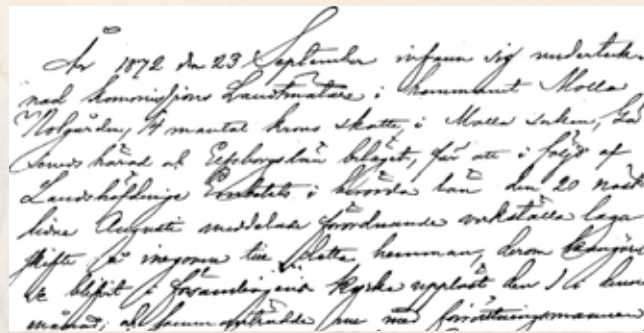 År 1872 den 23 September infann sig underteck-
nad Kommissions Landtmätare i hemmanet Molla
Nolgården, 1/4 mantal krono skatte, i Molla socken,
härad och Elfsborgs län beläget, för att i följd af
Landshöfdinge Embetets i län den 20 näst-
lidne Augusti meddelade förordnande verkställa laga
skifte å inegorna till detta hemman, derom
blifvit i församlingens Kyrka uppläst den 1 i denne
månad; och med förrättningsmannen